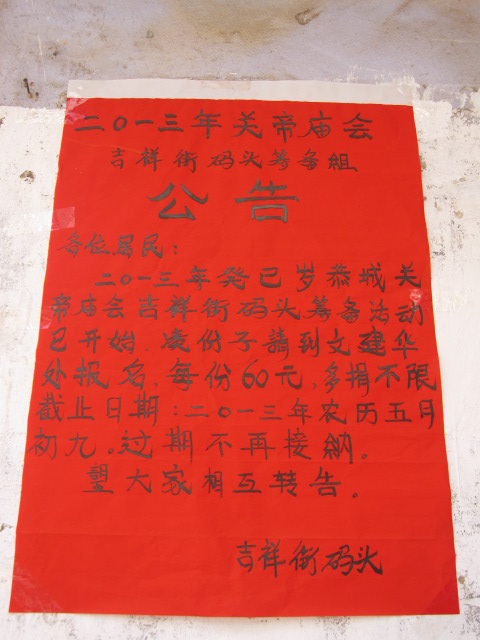 二〇一三年关帝庙会
吉祥街码头筹备组
公告
各位居民：
二〇一三年癸巳岁恭城关
帝庙会吉祥街码头筹备活动
已开始，凑份子請到文建华
处报名，每份60元，多捐不限
截止日期：二〇一三年农历五月
初九。过期不再接納。
望大家相互转告。
吉祥街码头